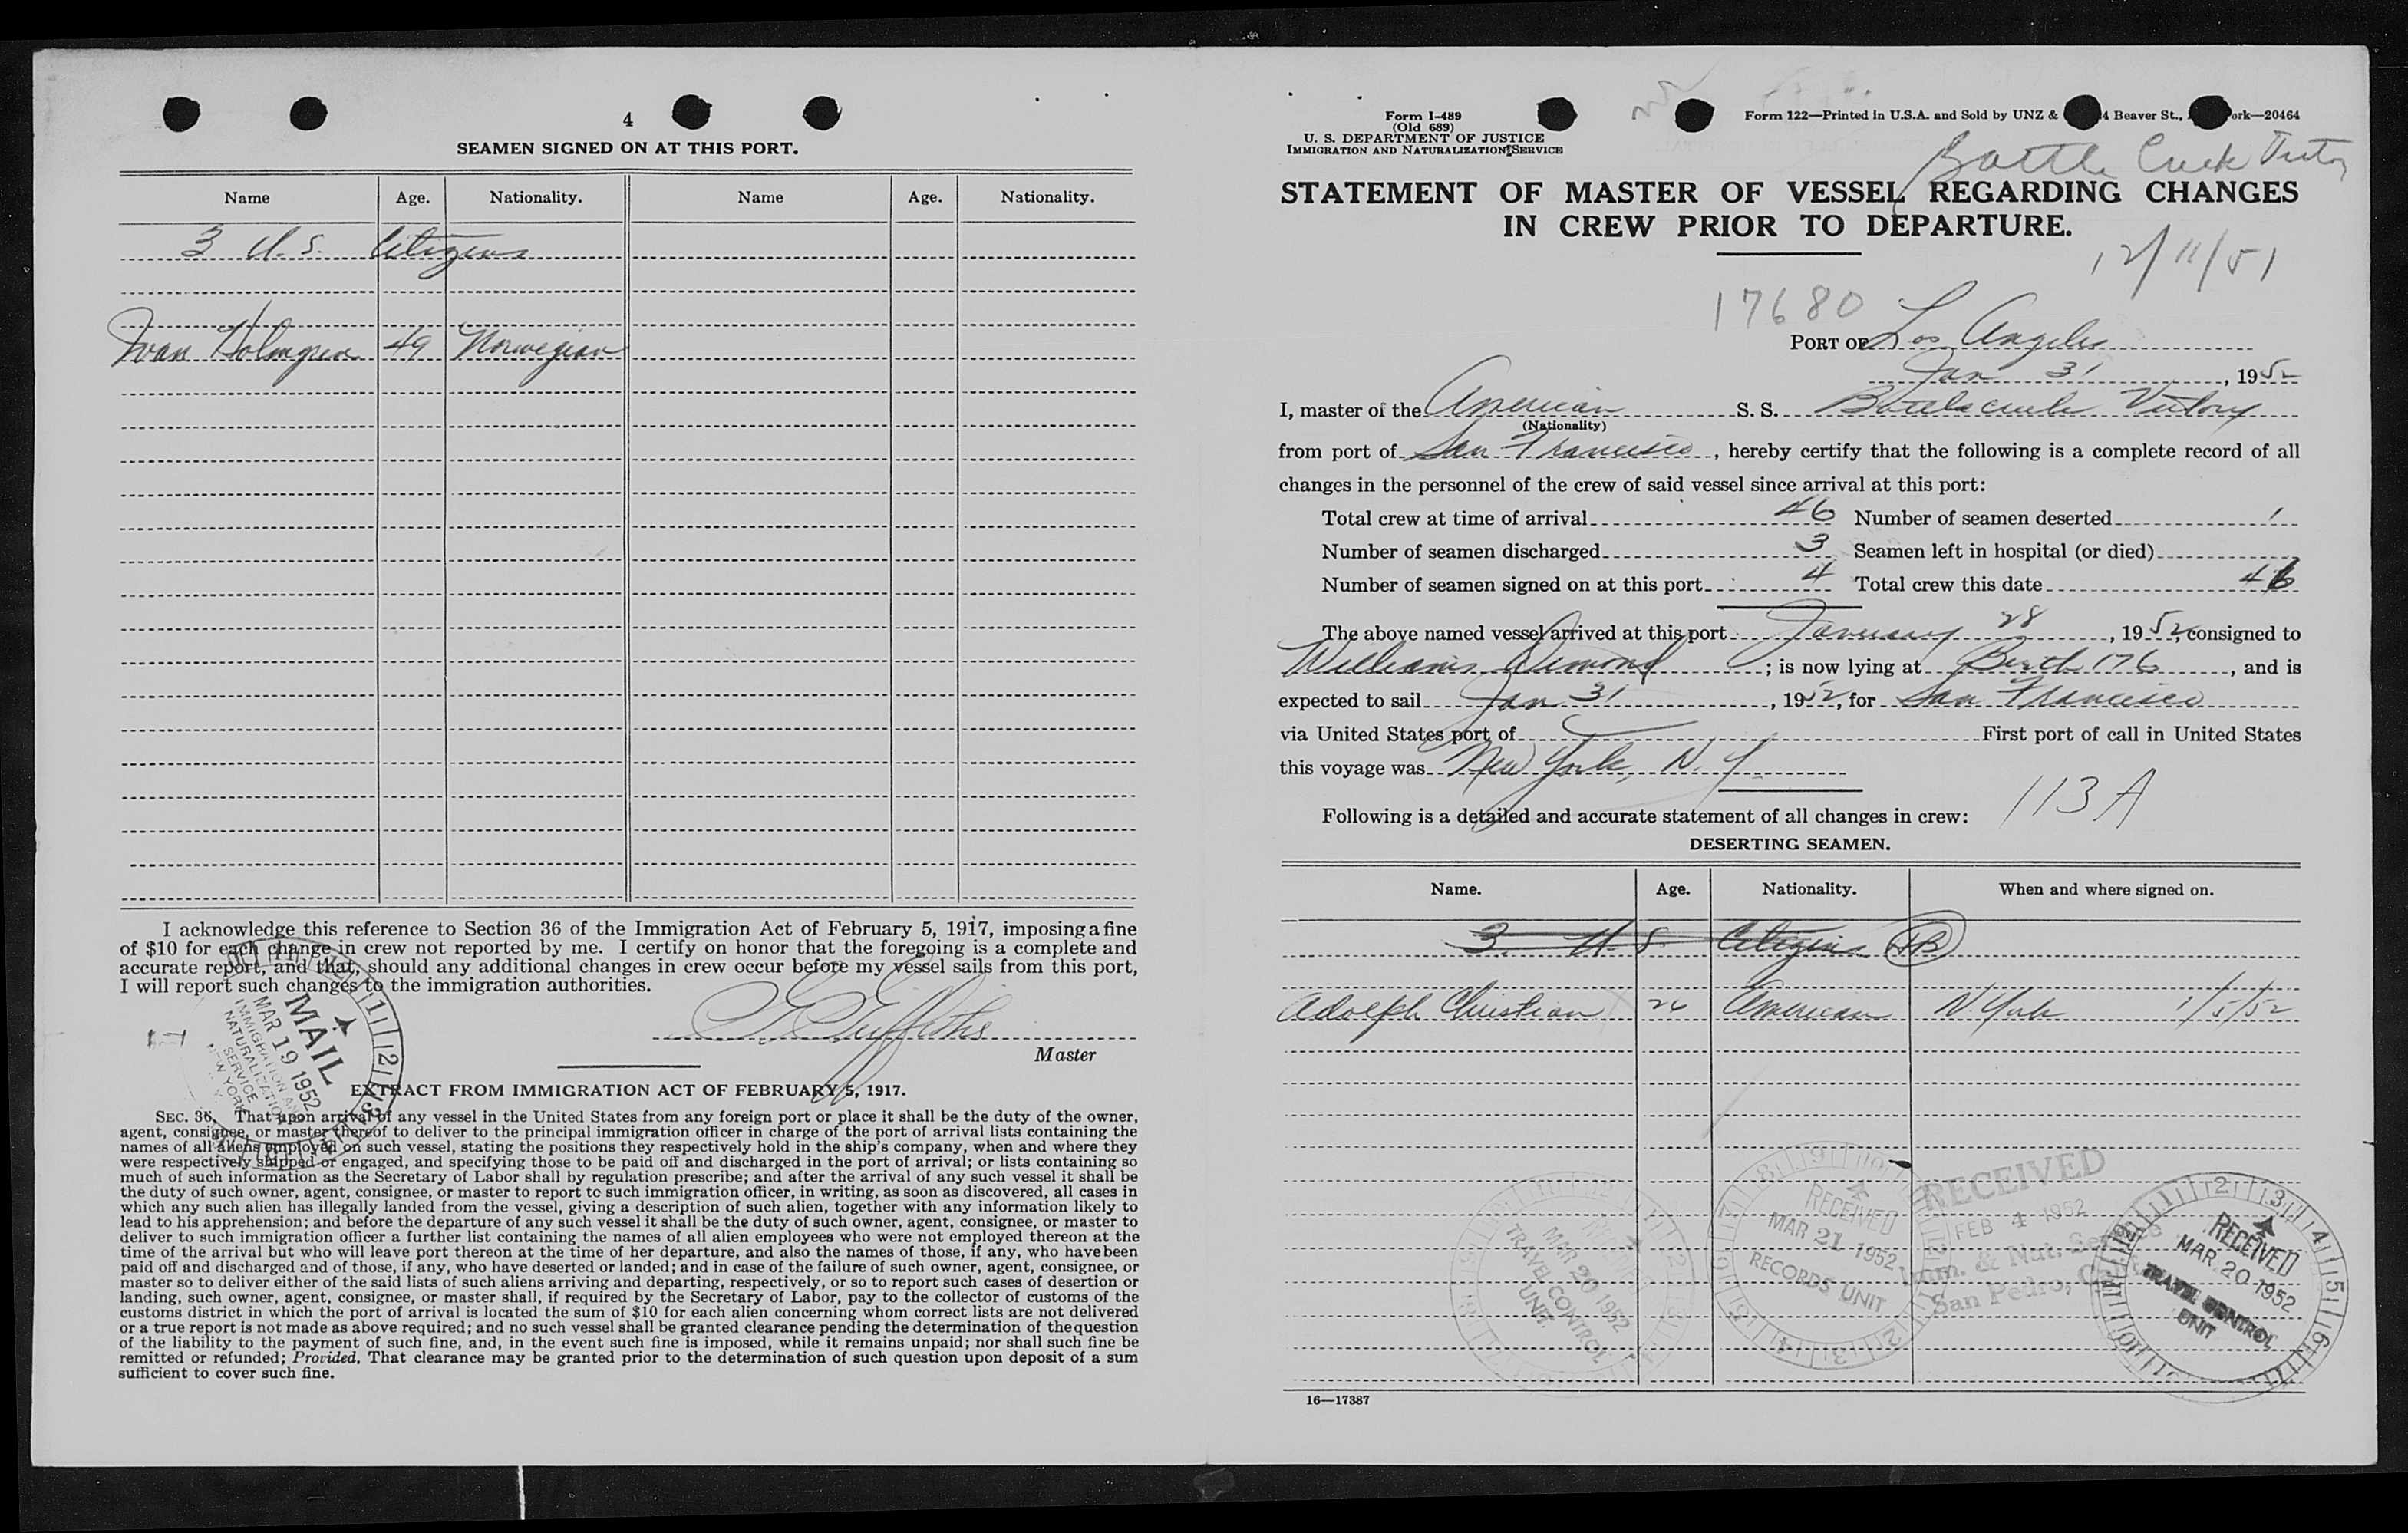 4
SEAMEN SIGNED ON AT THIS PORT.
Name Age. Nationality. Name Age. Nationality.
3 U.S. Citizens
Ivan Holmgren 49 Norwegian
I acknowledge this reference to Section 36 of the Immigration Act of February 5, 1917, imposing a fine
of $10 for each change in crew not reported by me. I certify on honor that the foregoing is a complete and
accurate report, and that, should any additional changes in crew occur before my vessel sails from this port,
I will report such changes to the immigration authorities.
Master
MAIL
MAR 19 1952
IMMIGRATION AND
NATURALIZATION
SERVICE
NEW YORK
EXTRACT FROM IMMIGRATION ACT OF FEBRUARY 5, 1917.
SEC. 36. That upon arrival of any vessel in the United States from any foreign port or place it shall be the duty of the owner,
agent, consignee, or master thereof to deliver to the principal immigration officer in charge of the port of arrival lists containing the
names of all aliens employed on such vessel, stating the positions they respectively hold in the ship's company, when and where they
were respectively shipped or engaged, and specifying those to be paid off and discharged in the port of arrival; or lists containing so
much of such information as the Secretary of Labor shall by regulation prescribe; and after the arrival of any such vessel it shall be
the duty of such owner, agent, consignee, or master to report to such immigration officer, in writing, as soon as discovered, all cases in
which any such alien has illegally landed from the vessel, giving a description of such alien, together with any information likely to
lead to his apprehension; and before the departure of any such vessel it shall be the duty of such owner, agent, consignee, or master to
deliver to such immigration officer a further list containing the names of all alien employees who were not employed thereon at the
time of the arrival but who will leave port thereon at the time of her departure, and also the names of those, if any, who have been
paid off and discharged and of those, if any, who have deserted or landed; and in case of the failure of such owner, agent, consignee, or
master so to deliver either of the said lists of such aliens arriving and departing, respectively, or so to report such cases of desertion or
landing, such owner, agent, consignee, or master shall, if required by the Secretary of Labor, pay to the collector of customs of the
customs district in which the port of arrival is located the sum of $10 for each alien concerning whom correct lists are not delivered
or a true report is not made as above required; and no such vessel shall be granted clearance pending the determination of the question
of the liability to the payment of such fine, and, in the event such fine is imposed, while it remains unpaid; nor shall such fine be
remitted or refunded; Provided, That clearance may be granted prior to the determination of such question upon deposit of a sum
sufficient to cover such fine.
Form I-489
(Old 689)
U. S. DEPARTMENT OF JUSTICE
IMMIGRATION AND NATURALIZATION SERVICE
Form 122—Printed in U.S.A. and Sold by UNZ & 4 Beaver St., ork—20464
Battle Creek Victory
STATEMENT OF MASTER OF VESSEL REGARDING CHANGES
IN CREW PRIOR TO DEPARTURE.
12/11/51
17680
PORT OF Los Angeles
Jan 31, 1952
I, master of the American S. S. Battlecreek Victory
(Nationality)
from port of San Francisco, hereby certify that the following is a complete record of all
changes in the personnel of the crew of said vessel since arrival at this port:
Total crew at time of arrival 46 Number of seamen deserted 1
Number of seamen discharged 3 Seamen left in hospital (or died)
Number of seamen signed on at this port 4 Total crew this date 46
The above named vessel arrived at this port January 28, 1952, consigned to
Williams Dimond; is now lying at Berth 176, and is
expected to sail Jan 31, 1952, for San Francisco
via United States port of First port of call in United States
this voyage was New York, N. Y.
113A
Following is a detailed and accurate statement of all changes in crew:
DESERTING SEAMEN.
Name. Age. Nationality. When and where signed on.
3 U S Citizens
Adolph Christian 26 American N. York 1/5/52
MAR 20 1952
TRAVEL CONTROL
UNIT
RECEIVED
MAR 21 1952
RECORDS UNIT
RECEIVED
FEB 4 1952
Imm. & Nat. Service
San Pedro,
RECEIVED
MAR 20 1952
TRAVEL CONTROL
UNIT
16—17387